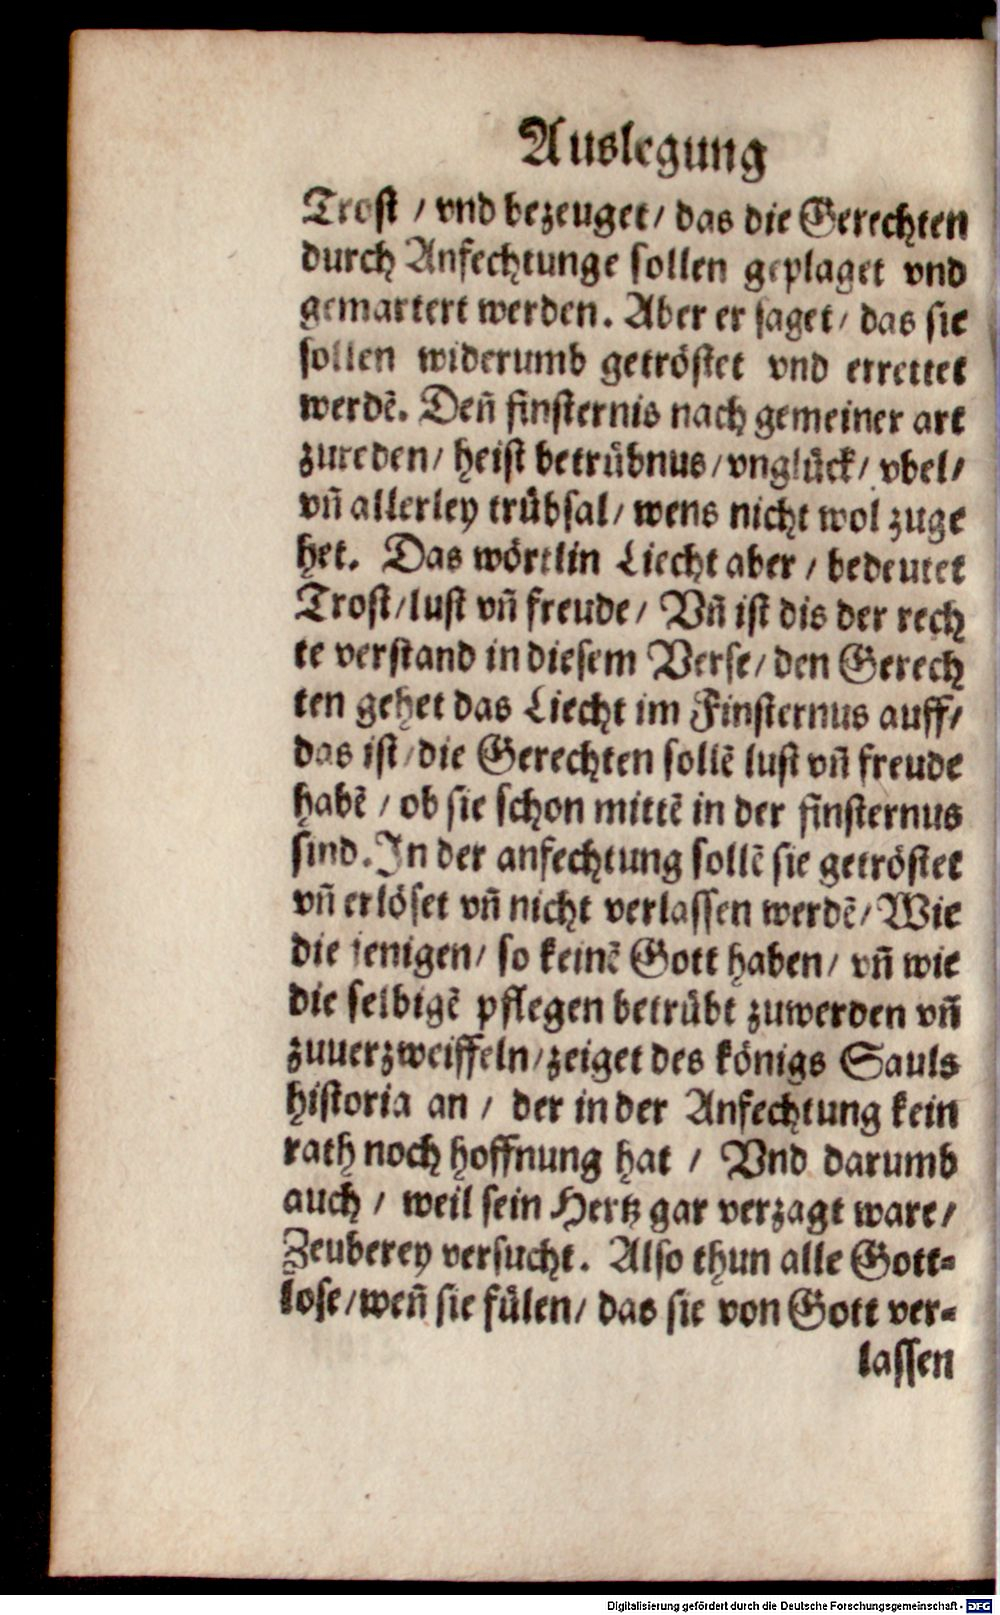 Auslegung
Trost / vnd bezeuget / das die Gerechten
durch Anfechtunge sollen geplaget vnd
gemartert werden. Aber er saget / das sie
sollen widerumb getröstet vnd errettet
werdẽ. Deñ finsternis nach gemeiner art
zureden / heist betrübnus / vnglück / vbel /
vñ allerley trübsal / wens nicht wol zuge
het. Das wörtlin Liecht aber / bedeutet
Trost / lust vñ freude / Vñ ist dis der rech
te verstand in diesem Verse / den Gerech
ten gehet das Liecht im Finsternus auff /
das ist / die Gerechten sollẽ lust vñ freude
habẽ / ob sie schon mittẽ in der finsternus
sind. In der anfechtung sollẽ sie getröstet
vñ erlöset vñ nicht verlassen werdẽ / Wie
die jenigen / so keinẽ Gott haben / vñ wie
die selbigẽ pflegen betrübt zuwerden vñ
zuuerzweiffeln / zeiget des königs Sauls
historia an / der in der Anfechtung kein
rath noch hoffnung hat / Vnd darumb
auch / weil sein Hertz gar verzagt ware /
Zeuberey versucht. Also thun alle Gott-
lose / weñ sie fülen / das sie von Gott ver-
lassen
Digitalisierung gefördert durch die Deutsche Forschungsgemeinschaft - DFG